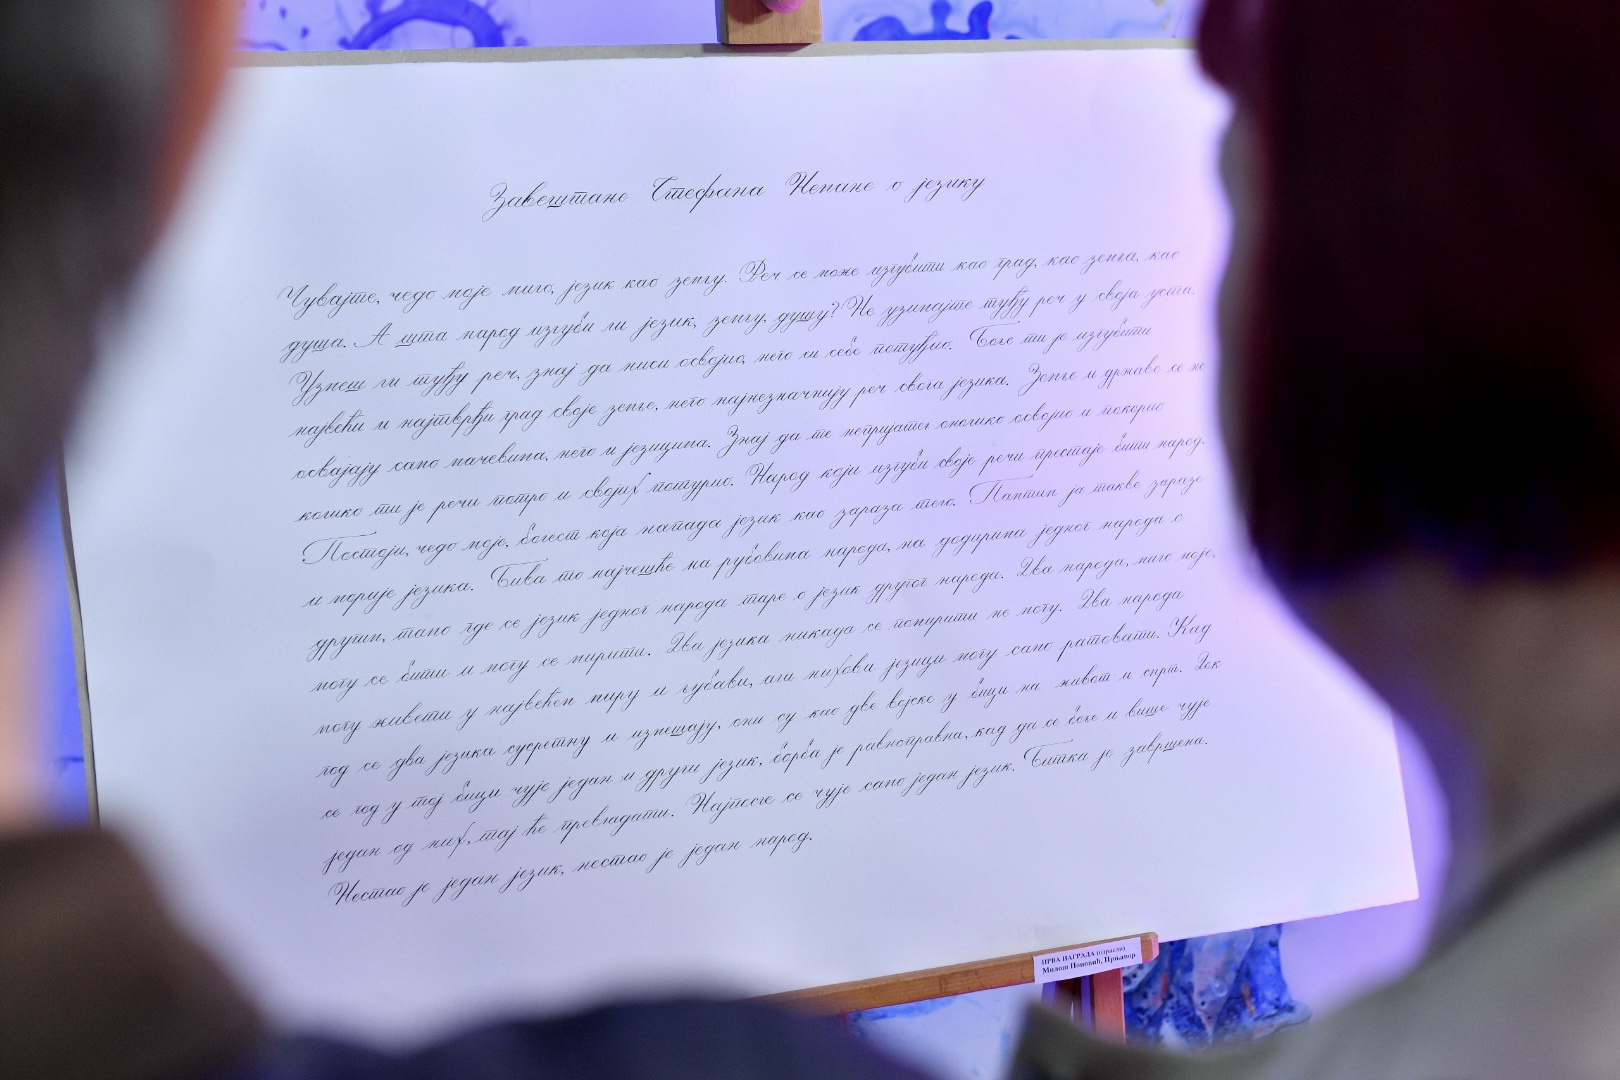 Завештање Стефана Немање о језику
Чувајте, чедо моје мило, језик као земљу. Реч се може изгубити као град, као земља, као
душа. А шта народ изгуби ли језик, земљу, душу? Не узимајте туђу реч у своја уста.
Узмеш ли туђу реч, знај да ниси освојио, него си себе потуђио. Боље ти је изгубити
највећи и најтврђи град своје земље, него најнезначнију реч свога језика. Земље и државе се не
освајају само мачевима, него и језицима. Знај да те непријатељ онолико освојио и покорио
колико ти је речи потро и својих потурио. Народ који изгуби своје речи престаје бити народ.
Постоји, чедо моје, болест која напада језик као зараза тело. Памтим ја такве заразе
и морије језика. Бива то најчешће на рубовима народа, на додирима једног народа с
другим, тамо где се језик једног народа таре о језик другог народа. Два народа, мило моје,
могу се бити и могу се мирити. Два језика никада се помирити не могу. Два народа
могу живети у највећем миру и љубави, али њихови језици могу само ратовати. Кад
год се два језика сусретну и измешају, они су као две војске у бици на живот и смрт. Док
се год у тој бици чује један и други језик, борба је равноправна, кад да се боље и више чује
један од њих, тај ће превладати. Најпосле се чује само један језик. Битка је завршена.
Нестао је један језик, нестао је један народ.
ПРВА НАГРАДА (одрасли)
Милош Поповић, Прњавор